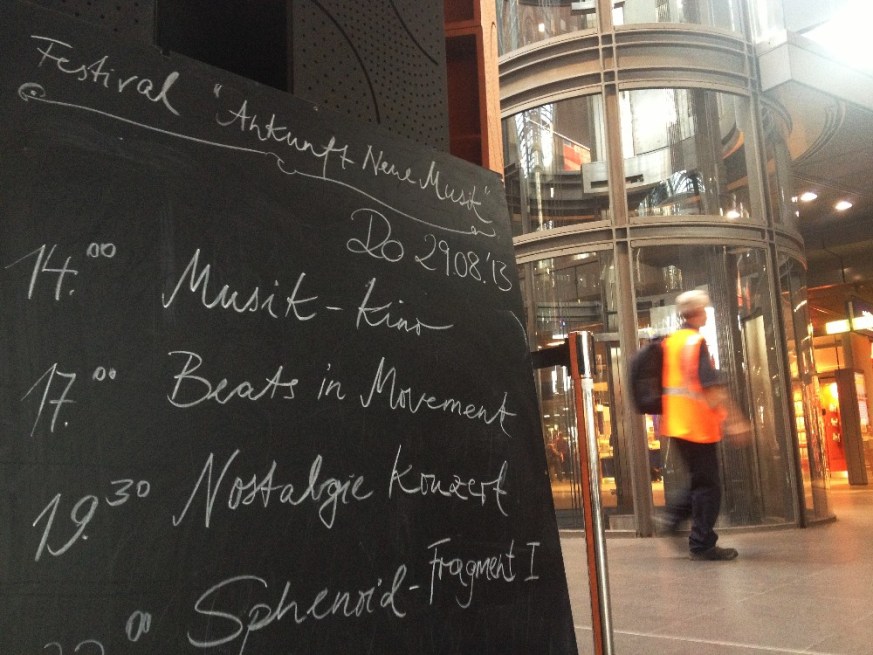 Festival "Ankunft Neue Musik"
Do 29.08.'13
14.00 Musik-Kino
17.00 Beats in Movement
19.30 Nostalgie Konzert
00 Sphenoid-Fragment I